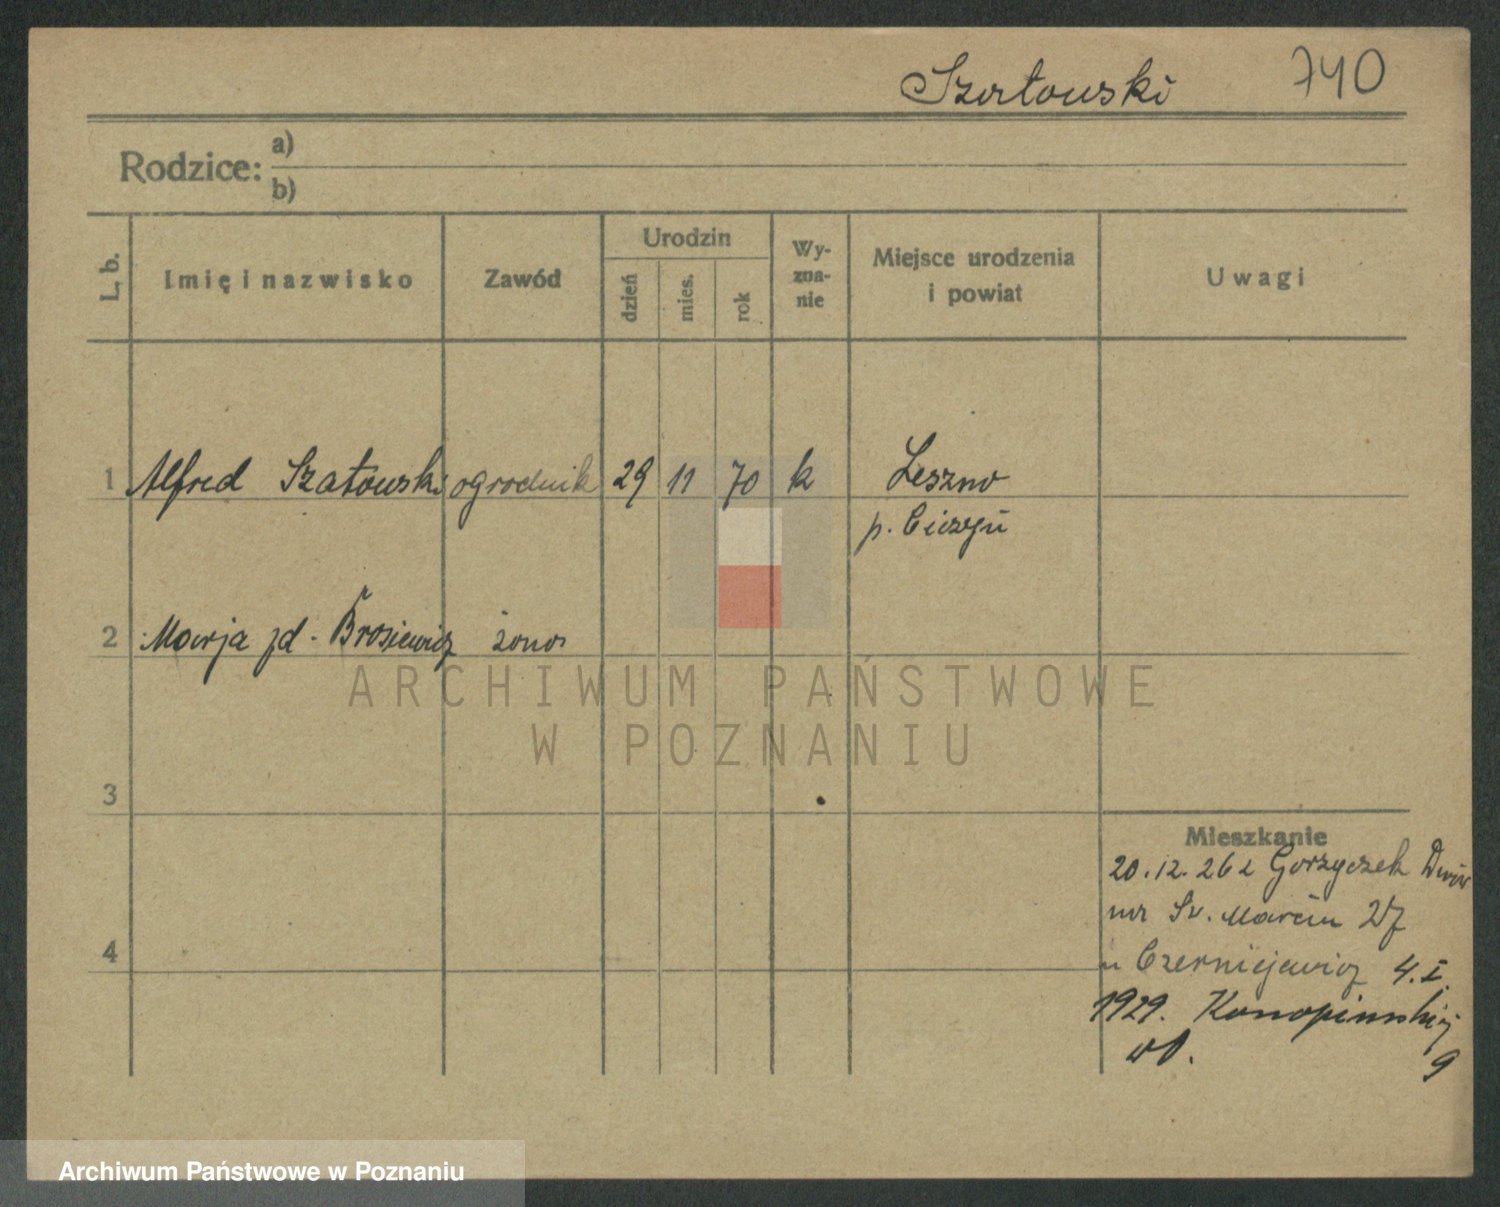 Szatowski 740
Rodzice: a)
b)
L. b.
Imię i nazwisko
Zawód
Urodzin
dzień
mies.
rok
Wy-
zna-
nie
Miejsce urodzenia
i powiat
Uwagi
1 Alfred Szatowski ogrodnik 29 11 70 k Leszno
p.
2 Marja zd. żona
ARCHIWUM PAŃSTWOWE
W POZNANIU
3
Mieszkanie
20.12.26 z Gorzyczek
na Św. Marcin 27
4
u Czerniejewicz 4.I.
1929. Konopinskiej
9
Archiwum Państwowe w Poznaniu